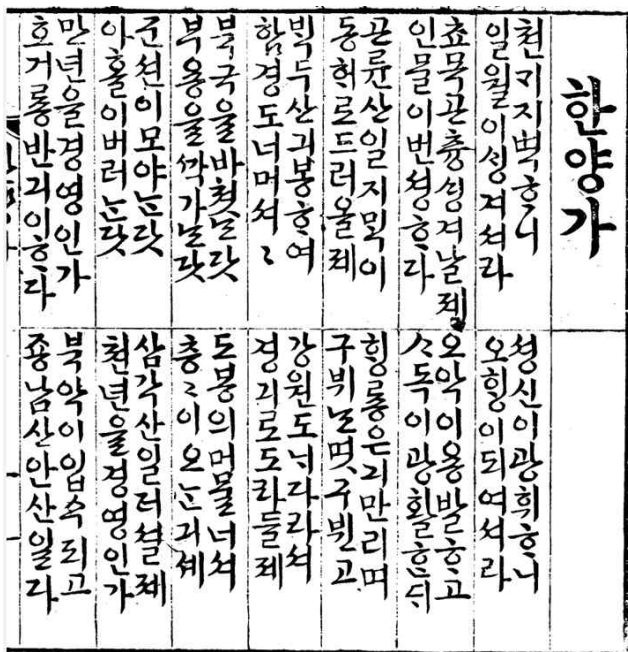 한양가
쳔기지벽ᄒᆞ니
일월이ᄉᆡᆼ겨셔라
셩신이광휘ᄒᆞ니
오ᄒᆡᆼ이되여셔라
쵸목곤츙ᄉᆡᆼ겨날졔
인물이번셩ᄒᆞ다
오악이용발ᄒᆞ고
ᄉᆞ독이광활ᄒᆞᆫᄃᆡ
곤륜산일지ᄆᆡᆨ이
동ᄒᆡ로드러올졔
ᄒᆡᆼ룡은긔만리며
구뷔ᄂᆞᆫ몃구뷘고
ᄇᆡᆨ두산긔봉ᄒᆞ여
함경도너머셔〻
강원도ᄂᆡ다라셔
경긔로도라들졔
북국을바쳣ᄂᆞᆫ닷
부용을ᄭᅡᆨ가ᄂᆞᆫ닷
도봉의머물너셔
층〻이오ᄂᆞᆫ긔셰
군션이모야ᄂᆞᆫ닷
아홀이버러ᄂᆞᆫ닷
삼각산일러셜졔
쳔년을경영인가
만년을경영인가
호거룡반긔이ᄒᆞ다
북악이입슈되고
죵남산안산일라